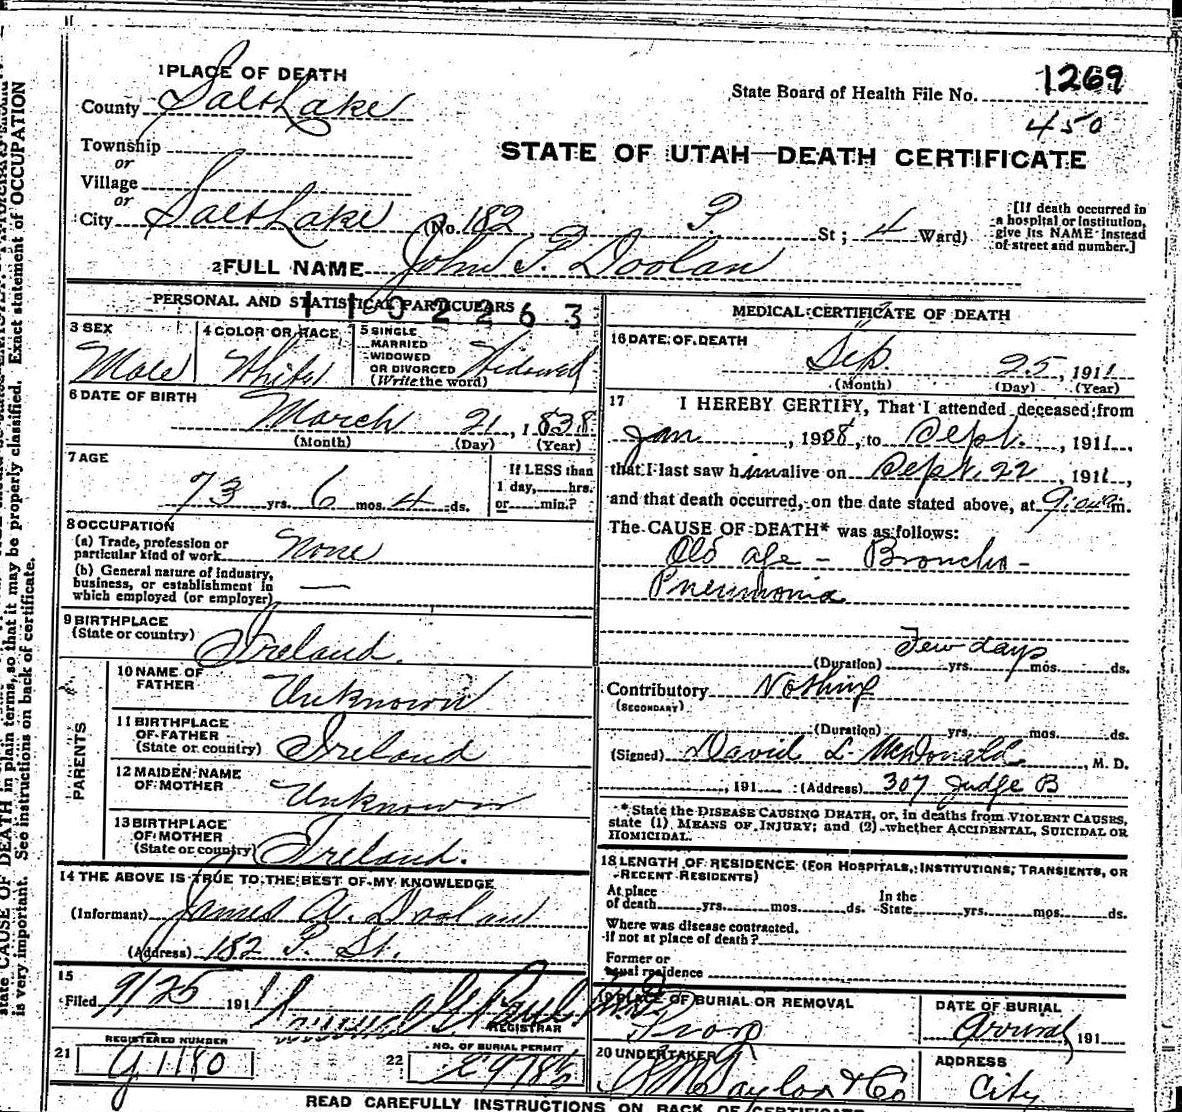 1 PLACE OF DEATH
County Salt Lake
State Board of Health File No. 1269
450
Township
or
Village
or
STATE OF UTAH—DEATH CERTIFICATE
City Salt Lake (No. 182 P. St; 4 Ward)
[If death occurred in
a hospital or institution,
give its NAME instead
of street and number.]
2 FULL NAME John P. Doolan
PERSONAL AND STATISTICAL PARTICULARS
1102263
3 SEX
Male
4 COLOR OR RACE
White
5 SINGLE
MARRIED
WIDOWED
OR DIVORCED
(Write the word)
Widowed
6 DATE OF BIRTH
March 21, 1838
(Month) (Day) (Year)
7 AGE
73 yrs. 6 mos. 4 ds.
If LESS than
1 day, hrs.
or min.?
8 OCCUPATION
(a) Trade, profession or
particular kind of work None
(b) General nature of industry,
business, or establishment in
which employed (or employer) —
9 BIRTHPLACE
(State or country) Ireland.
PARENTS
10 NAME OF
FATHER Unknown
11 BIRTHPLACE
OF FATHER
(State or country) Ireland
12 MAIDEN NAME
OF MOTHER Unknown
13 BIRTHPLACE
OF MOTHER
(State or country) Ireland.
14 THE ABOVE IS TRUE TO THE BEST OF MY KNOWLEDGE
(Informant) James A. Doolan
(Address) 182 P. St.
15
Filed 9/25 1911
REGISTRAR
REGISTERED NUMBER
21 G1180
NO. OF BURIAL PERMIT
22
MEDICAL CERTIFICATE OF DEATH
16 DATE OF DEATH
Sep. 25, 1911
(Month) (Day) (Year)
17 I HEREBY CERTIFY, That I attended deceased from
Jan, 1908, to Sept., 1911.
that I last saw him alive on Sept. 22, 1911,
and that death occurred, on the date stated above, at m.
The CAUSE OF DEATH* was as follows:
Old age - Broncho-
Pneumonia
Few days
(Duration) yrs. mos. ds.
Contributory Nothing
(SECONDARY)
(Duration) yrs. mos. ds.
(Signed) David L. McDonald, M. D.
, 191 (Address) 307 Judge B
*State the DISEASE CAUSING DEATH, or, in deaths from VIOLENT CAUSES,
state (1) MEANS OF INJURY; and (2) whether ACCIDENTAL, SUICIDAL OR
HOMICIDAL.
18 LENGTH OF RESIDENCE (FOR HOSPITALS, INSTITUTIONS, TRANSIENTS, OR
RECENT RESIDENTS)
At place
of death yrs. mos. ds.
In the
State yrs. mos. ds.
Where was disease contracted,
if not at place of death?
Former or
usual residence
19 PLACE OF BURIAL OR REMOVAL
Provo
DATE OF BURIAL
Arrival 191
20 UNDERTAKER
Taylor & Co
ADDRESS
City
READ CAREFULLY INSTRUCTIONS ON BACK OF CERTIFICATE
state CAUSE OF DEATH in plain terms, so that it may be properly classified. Exact statement of OCCUPATION
is very important. See instructions on back of certificate.